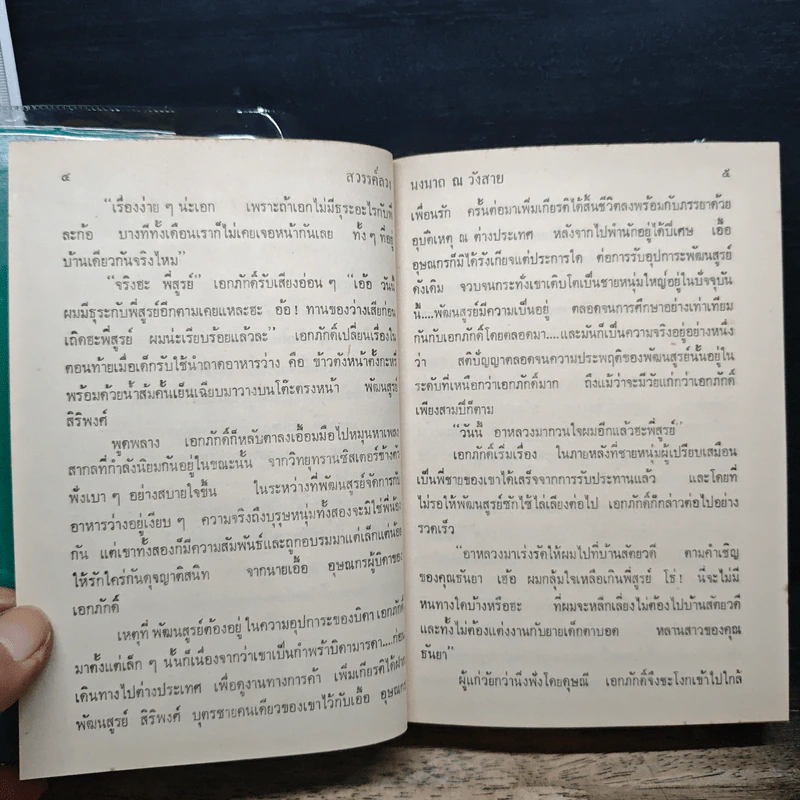 ๔ สวรรค์ลวง
“เรื่องง่าย ๆ น่ะเอก เพราะถ้าเอกไม่มีธุระอะไรกับพี่
ละก้อ บางทีทั้งเดือนเราก็ไม่เคยเจอหน้ากันเลย ทั้ง ๆ ที่อยู่
บ้านเดียวกันจริงไหม”
“จริงฮะ พี่สูรย์” เอกภักดิ์รับเสียงอ่อน ๆ “เอ้อ วันนี้
ผมมีธุระกับพี่สูรย์อีกตามเคยแหละฮะ อ้อ! ทานของว่างเสียก่อน
เถิดฮะพี่สูรย์ ผมน่ะเรียบร้อยแล้วละ” เอกภักดิ์เปลี่ยนเรื่องใน
ตอนท้ายเมื่อเด็กรับใช้นำถาดอาหารว่าง คือ ข้าวตังหน้าตั้งกะทิ
พร้อมด้วยน้ำส้มคั้นเย็นเฉียบมาวางบนโต๊ะตรงหน้า พัฒนสูรย์
สิริพงศ์
พูดพลาง เอกภักดิ์ก็หลับตาลงเอื้อมมือไปหมุนหาเพลง
สากลที่กำลังนิยมกันอยู่ในขณะนั้น จากวิทยุทรานซิสเตอร์ข้างตัว
ฟังเบา ๆ อย่างสบายใจขึ้น ในระหว่างที่พัฒนสูรย์จัดการกับ
อาหารว่างอยู่เงียบ ๆ ความจริงถึงบุรุษหนุ่มทั้งสองจะมิใช่พี่น้อง
กัน แต่เขาทั้งสองก็มีความสัมพันธ์และถูกอบรมมาแต่เล็กแต่น้อย
ให้รักใคร่กันดุจญาติสนิท จากนายเอื้อ อุษณกรผู้บิดาของ
เอกภักดิ์
เหตุที่ พัฒนสูรย์ต้องอยู่ ในความอุปการะของบิดา เอกภักดิ์
มาตั้งแต่เล็ก ๆ นั้นก็เนื่องจากว่าเขาเป็นกำพร้าบิดามารดา....ก่อน
เดินทางไปต่างประเทศ เพื่อดูงานทางการค้า เพิ่มเกียรติได้ฝาก
พัฒนสูรย์ สิริพงศ์ บุตรชายคนเดียวของเขาไว้กับเอื้อ อุษณกร
นงนาถ ณ วังสาย ๕
เพื่อนรัก ครั้นต่อมาเพิ่มเกียรติได้สิ้นชีวิตลงพร้อมกับภรรยาด้วย
อุบัติเหตุ ณ ต่างประเทศ หลังจากไปพำนักอยู่ได้ปีเศษ เอื้อ
อุษณกรก็มิได้รังเกียจแต่ประการใด ต่อการรับอุปการะพัฒนสูรย์
ดังเดิม จวบจนกระทั่งเขาเติบโตเป็นชายหนุ่มใหญ่อยู่ในปัจจุบัน
นี้....พัฒนสูรย์มีความเป็นอยู่ ตลอดจนการศึกษาอย่างเท่าเทียม
กันกับเอกภักดิ์โดยตลอดมา....และมันก็เป็นความจริงอยู่อย่างหนึ่ง
ว่า สติปัญญาตลอดจนความประพฤติของพัฒนสูรย์นั้นอยู่ใน
ระดับที่เหนือกว่าเอกภักดิ์มาก ถึงแม้ว่าจะมีวัยแก่กว่าเอกภักดิ์
เพียงสามปีก็ตาม
“วันนี้ อาหลวงมากวนใจผมอีกแล้วฮะพี่สูรย์”
เอกภักดิ์เริ่มเรื่อง ในภายหลังที่ชายหนุ่มผู้เปรียบเสมือน
เป็นพี่ชายของเขาได้เสร็จจากการรับประทานแล้ว และโดยที่
ไม่รอให้พัฒนสูรย์ซักไซ้ไล่เลียงต่อไป เอกภักดิ์ก็กล่าวต่อไปอย่าง
รวดเร็ว
“อาหลวงมาเร่งรัดให้ผมไปที่บ้านสัตยวดี ตามคำเชิญ
ของคุณธันยา เฮ้อ ผมกลุ้มใจเหลือเกินพี่สูรย์ โธ่! นี่จะไม่มี
หนทางใดบ้างหรือฮะ ที่ผมจะหลีกเลี่ยงไม่ต้องไปบ้านสัตยวดี
และทั้งไม่ต้องแต่งงานกับยายเด็กตาบอด หลานสาวของคุณ
ธันยา”
ผู้แก่วัยกว่านิ่งฟังโดยดุษณี เอกภักดิ์จึงชะโงกเข้าไปใกล้